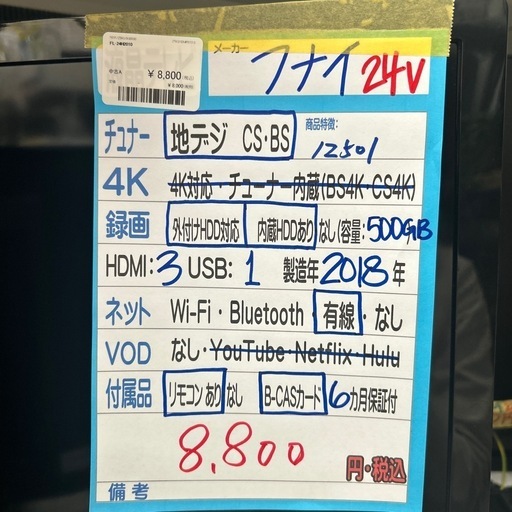 FL-24HB2010
中古A
¥8,800(税込)
¥8,000(税抜)
メーカー
フナイ 24V
チューナー 地デジ CS・BS 商品特徴: 12501
4K 4K対応・チューナー内蔵(BS4K・CS4K)
録画 外付けHDD対応 内蔵HDDあり なし (容量:500GB
HDMI:3 USB:1 製造年2018年
ネット Wi-Fi・Bluetooth・有線・なし
VOD なし・YouTube・Netflix・Hulu
付属品 リモコンあり なし B-CASカード 6カ月保証付
8,800
円・税込
備考